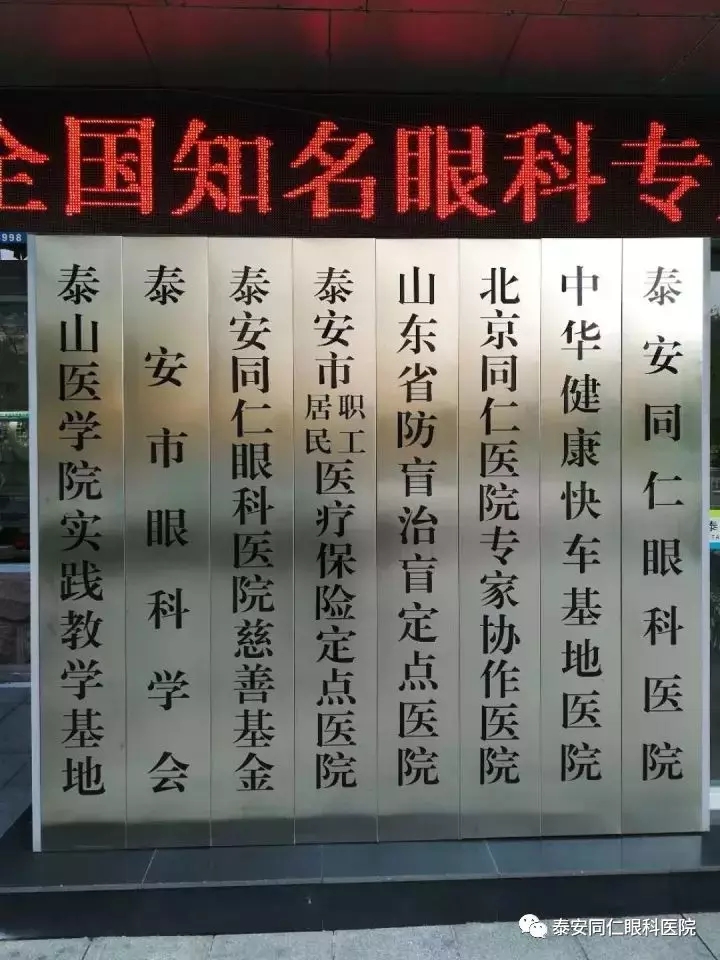 全国知名眼科专
998
泰安同仁眼科医院
中华健康快车基地医院
北京同仁医院专家协作医院
山东省防盲治盲定点医院
泰安市职工居民医疗保险定点医院
泰安同仁眼科医院慈善基金
泰安市眼科学会
泰山医学院实践教学基地
泰
TA
泰安同仁眼科医院